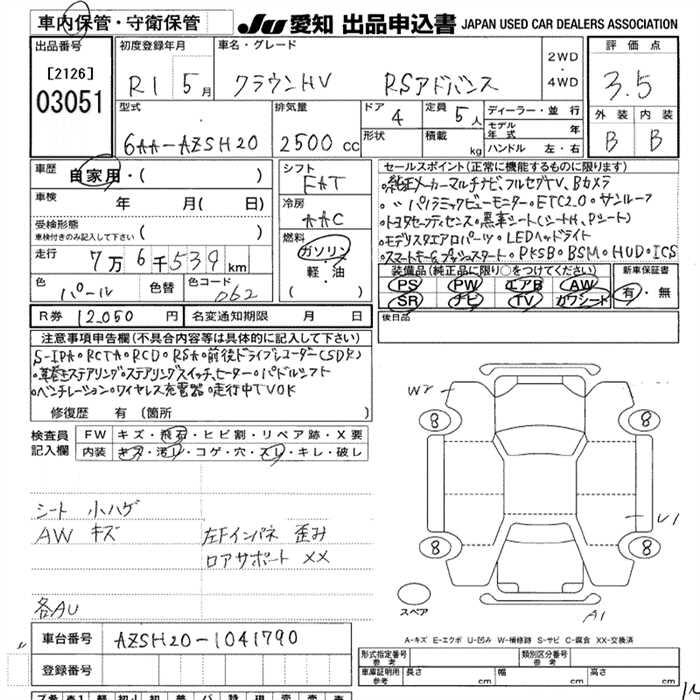 車内保管・守衛保管 JU 愛知 出品申込書 JAPAN USED CAR DEALERS ASSOCIATION
出品番号 初度登録年月 車名・グレード 評価点
[2126] R1 5月 クラウンHV RSアドバンス 2WD・4WD 3.5
03051
型式 排気量 ドア 4 定員 5人 ディーラー・並行 外装 内装
6AA-AZSH20 2500cc 形状 積載 kg モデル年式 年 B B
ハンドル 左・右
車歴 自家用・( ) シフト セールスポイント(正常に機能するものに限ります)
FAT 。純正メーカーマルチナビ、フルセグTV、Bカメラ
車検 年 月(日) 冷房 。〃パノラミックビューモニター。ETC2.0。サンルーフ
AAC 。トヨタセーフティセンス。黒革シート(シートH、Pシート)
受検形態 車検付きのみ記入して下さい ( ) 燃料 。モデリスタエアロパーツ。LEDヘッドライト
走行 7万6千539km ガソリン・軽・油 ( ) 。スマートキー&プッシュスタート。PKSB。BSM。HUD。ICS
色 パール 色替 色コード 062 装備品(純正品に限り○をつけてください) 新車保証書
PS PW エアB AW 有・無
SR ナビ TV カワシート
R券 12,050円 名変通知期限 月 日 後日品
注意事項申告欄(不具合箇所等は具体的に記入して下さい)
S-IPA。RCTA。RCD。RSA。前後ドライブレコーダー(SDK)
。革巻きステアリング。ステアリングスイッチ、ヒーター。パドルシフト
。ベンチレーション。ワイヤレス充電器。走行中TVOK
修復歴 有(箇所 )
検査員記入欄 FW キズ・飛石・ヒビ割・リペア跡・X要
内装 キズ・汚レ・コゲ・穴・スレ・キレ・破レ
W2
8 8
シート 小ハゲ
AW キズ 左Fインパネ 歪み
U1
ロアサポート XX
8 8
スペア
各AU
A1
A-キズ E-エクボ U-凹み W-補修跡 S-サビ C-腐食 XX-交換済
車台番号 AZSH20-1041790
登録番号
形式指定番号 参考 類別区分番号 参考
車庫証明用 参考 長さ cm 幅 cm 高さ cm